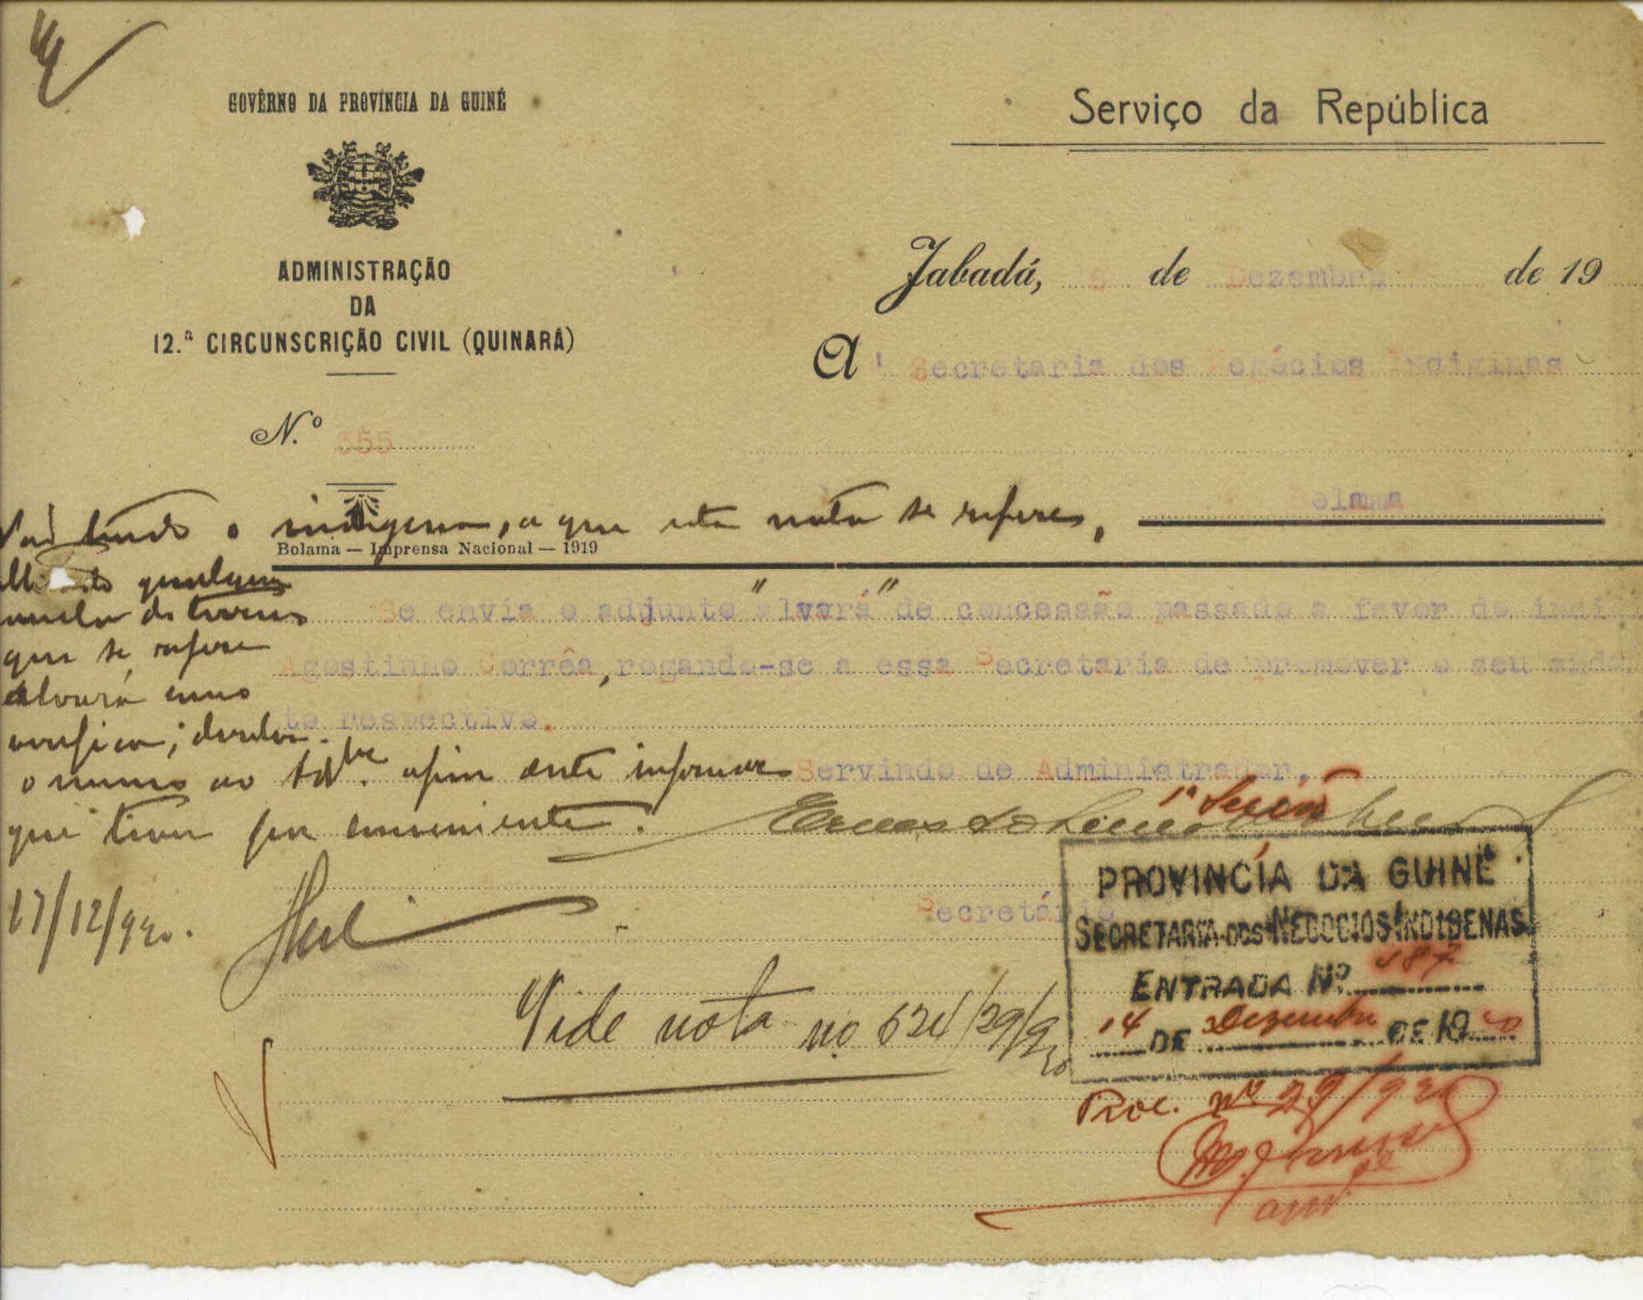 GOVÊRNO DA PROVÍNCIA DA GUINÉ
Serviço da República
ADMINISTRAÇÃO
DA
12.ª CIRCUNSCRIÇÃO CIVIL (QUINARÁ)
Jabadá, de Dezembro de 19
A' Secretaria dos Negócios Indiginas
N.º 555
Bolama
o indigena, a que esta nota se refere,
Bolama — Imprensa Nacional — 1919
qualquer
de terreno
que se refere
alvará como
verifica; devolva
Se envia o adjunto "alvará" de concessão passado a favor do indi
Agostinho Corrêa, rogando-se a essa Secretaria de promover o seu
te respectivo.
o mesmo ao afim de este informar
que tiver por conveniente.
Servindo de Administrador,
1ª Secção
17/12/920.
Secretário
PROVINCÍA DA GUINÉ
SECRETARIA DOS NEGOCIOS INDIGENAS
ENTRADA Nº 187
14 DE Dezembro DE 1920
Vide nota no 624/29/920
Proc. nº 29/920